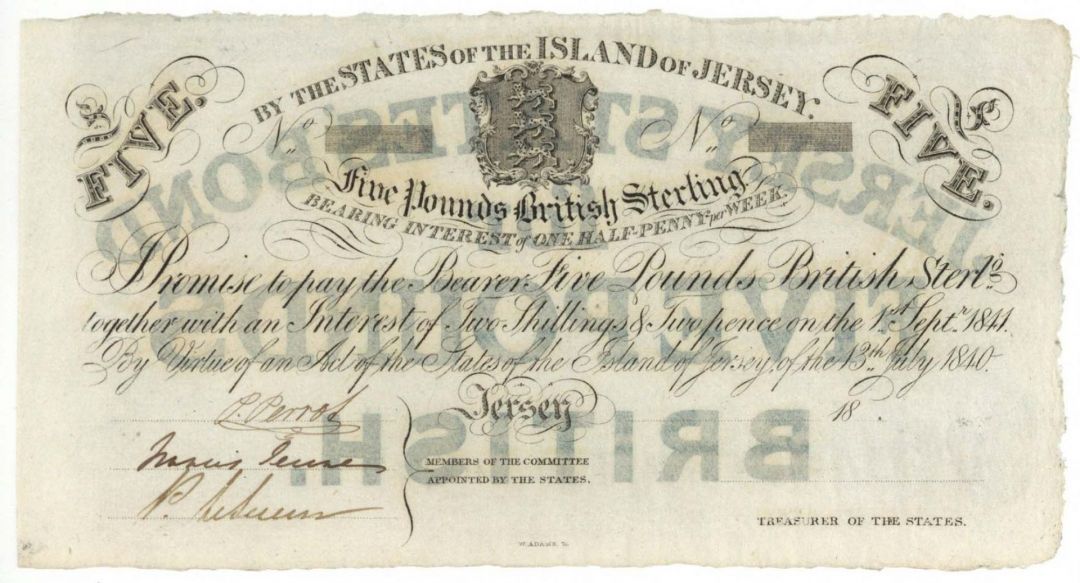 BY THE STATES OF THE ISLAND OF JERSEY.
£ FIVE.
£ FIVE.
No No
Five Pounds British Sterling
BEARING INTEREST of ONE HALF-PENNY per WEEK.
I Promise to pay the Bearer Five Pounds British Sterlg.
together with an Interest of Two Shillings & Two pence on the 1st Septr. 1841.
By Virtue of an Act of the States of the Island of Jersey, of the 13th July 1840.
Jersey 18
P. Perrot
MEMBERS OF THE COMMITTEE
APPOINTED BY THE STATES.
TREASURER OF THE STATES.
W. ADAMS, Sc.
JERSEY STATES' BOND
FIVE POUNDS
BRITISH.